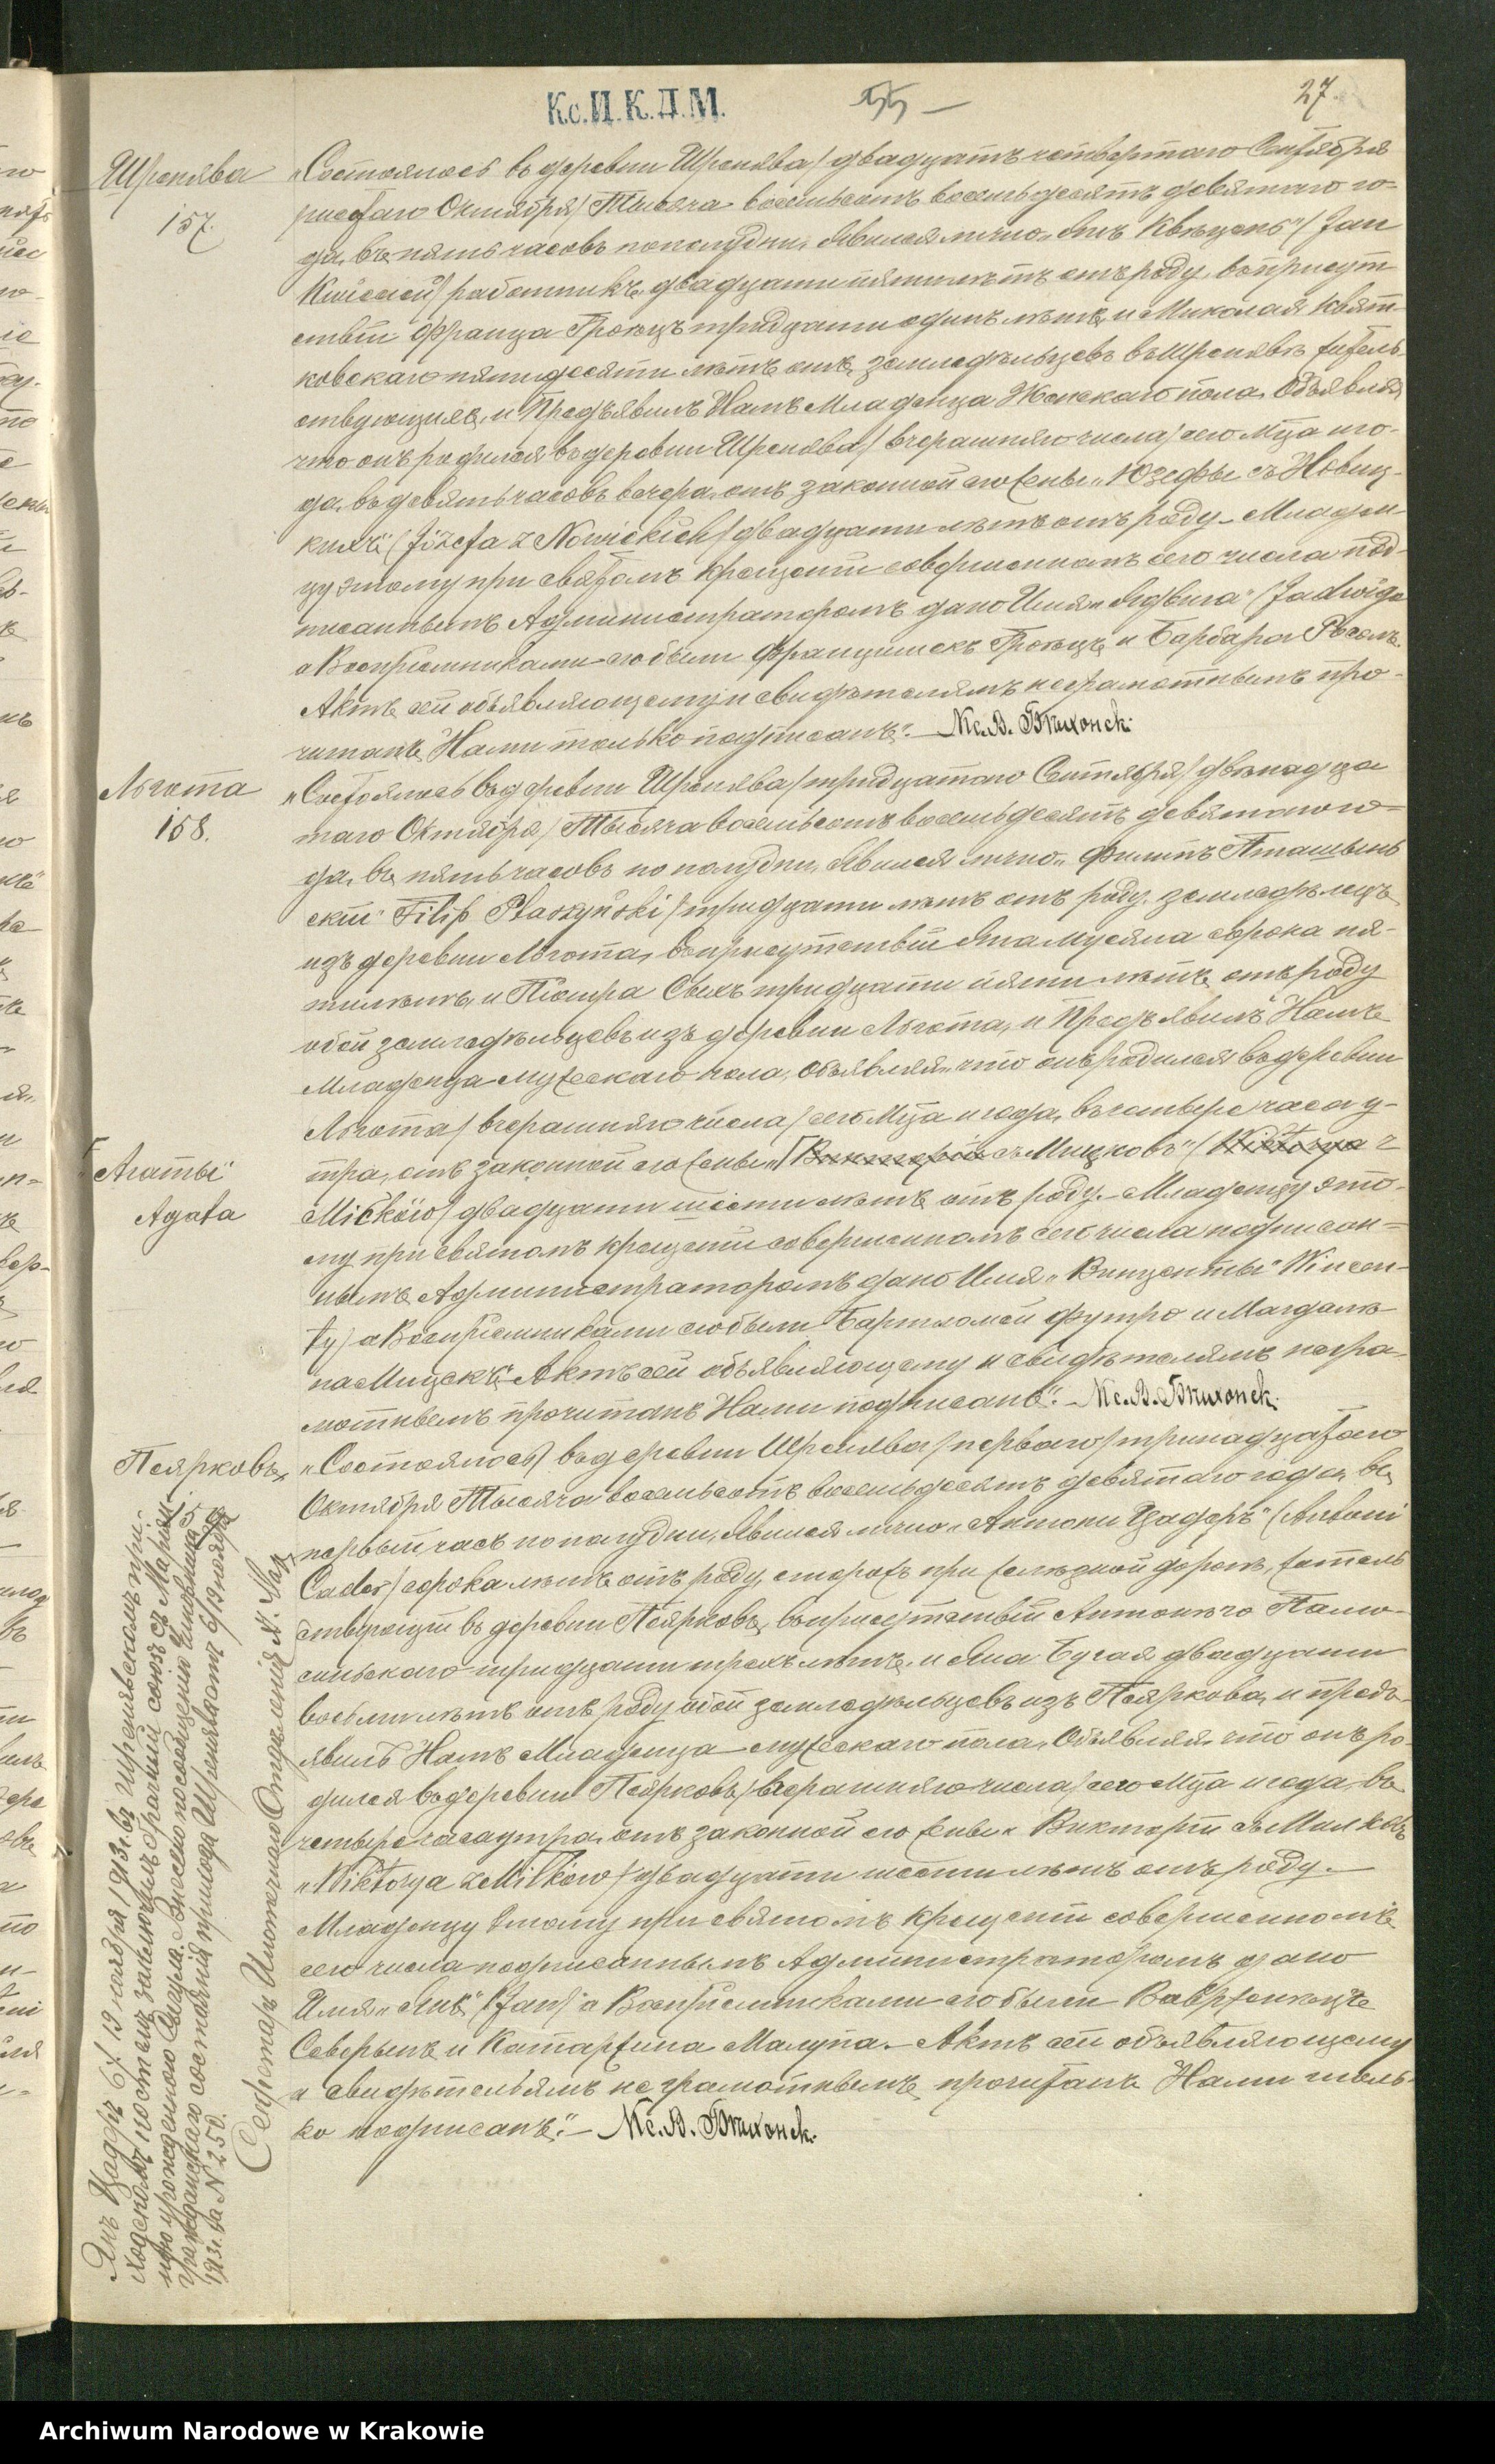 Кс.И.К.Д.М.
27.
Шренява
157.
„Состоялось въ деревни Шренява / двадцать четвертаго Сентября
/ шестаго Октября / Тысяча восемьсотъ восемьдесятъ девятаго го-
да, въ пять часовъ пополудни. Явился лично „Янъ / Jan
работникъ, двадцати пяти лѣтъ отъ роду, въ присут-
ствіи Франца тридцати одинъ лѣтъ, и Миколая Квят-
ковскаго пятидесяти лѣтъ отъ, земледѣльцевъ въ Шренявѣ житель-
ствующихъ, и Предъявилъ Намъ Младенца Женскаго пола, Объявляя
что онъ родился въ деревни Шренява / вчерашняго числа / сего Мца и го-
да, въ девять часовъ вечера, отъ законной его жены „Юзефы съ Новиц-
кихъ" (Józefa z Nowickich / двадцати лѣтъ отъ роду. Младен-
цу этому при святомъ крещеніи совершенномъ сего числа под-
писаннымъ Администраторомъ дано Имя „Ядвига" / Jadwiga
а Воспріемниками его были Францишекъ и Барбара
Актъ сей объявляющему и свидѣтелямъ неграмотнымъ про-
читанъ, Нами только подписанъ." — Кс.В.
Льгота
158.
„Состоялось въ деревни Шренява / тридцатаго Сентября / двѣнадца-
таго Октября / Тысяча восемьсотъ восемьдесятъ девятаго го-
да, въ пять часовъ по полудни, Явился лично „Филипъ Пташинь-
скій" Filip Ptaszyński / тридцати лѣтъ отъ роду, земледѣлецъ,
изъ деревни Льгота, въ присутствіи Яна Мусяла сорока пя-
ти лѣтъ, и Піотра тридцати пяти лѣтъ отъ роду
обои земледѣльцевъ изъ деревни Льгота, и Предъявилъ Намъ
Младенца мужескаго пола, Объявляя, что онъ родился въ деревни
Льгота / вчерашняго числа / сего Мца и года, въ четыре часа у-
тра, отъ законной его жены „Викторіи съ Мицковъ" / Wiktorya z
„Агаты"
Agata
Mićków / двадцати шести лѣтъ отъ роду. — Младенцу это-
му при святомъ крещеніи совершенномъ сего числа подписан-
нымъ Администраторомъ дано Имя „Винценты" Wincen-
ty / а Воспріемниками его были Бартломей Футро и Магдале-
на Мицекъ. Актъ сей объявляющему и свидѣтелямъ негра-
мотнымъ прочитанъ Нами подписанъ." — Кс.В.
Поярковъ
159
„Состоялось въ деревни Шренява / перваго / тринадцатаго
Октября Тысяча восемьсотъ восемьдесятъ девятаго года, въ
первый часъ пополудни, Явился лично „Антони Цадеръ" (Antoni
Cader / сорока лѣтъ отъ роду, сторожъ при желѣзной дорогѣ, житель-
ствующій въ деревни Поярковъ, въ присутствіи Антонего
тридцати трехъ лѣтъ, и Яна двадцати
восьми лѣтъ отъ роду обои земледѣльцевъ изъ Пояркова, и предъ-
явилъ Намъ Младенца мужескаго пола, Объявляя, что онъ ро-
дился въ деревни Поярковъ / вчерашняго числа / сего Мца и года, въ
четыре часа утра, отъ законной его жены „Викторіи съ Милковъ
„Wiktorya z Miłków / двадцати шести лѣтъ отъ роду. —
Младенцу этому при святомъ крещеніи совершенномъ
сего числа подписаннымъ Администраторомъ дано
Имя „Янъ" / Jan / а Воспріемниками его были Вавржинецъ
Северынъ и Катаржина Малупа. — Актъ сей объявляющему
и свидѣтельямъ неграмотнымъ, прочитанъ Нами толь-
ко подписанъ." — Кс.В.
Янъ Цадеръ 6/19 ноября 1913 г. въ Шренявскомъ при-
ходскомъ костелѣ заключилъ брачный союзъ съ Маріан-
ною урожденною Внесено по сообщенію Чиновника
гражданскаго состоянія прихода Шренява отъ 6/19 ноября
1913 г. за N 250.
Секретарь Ипотечнаго Отдѣленія